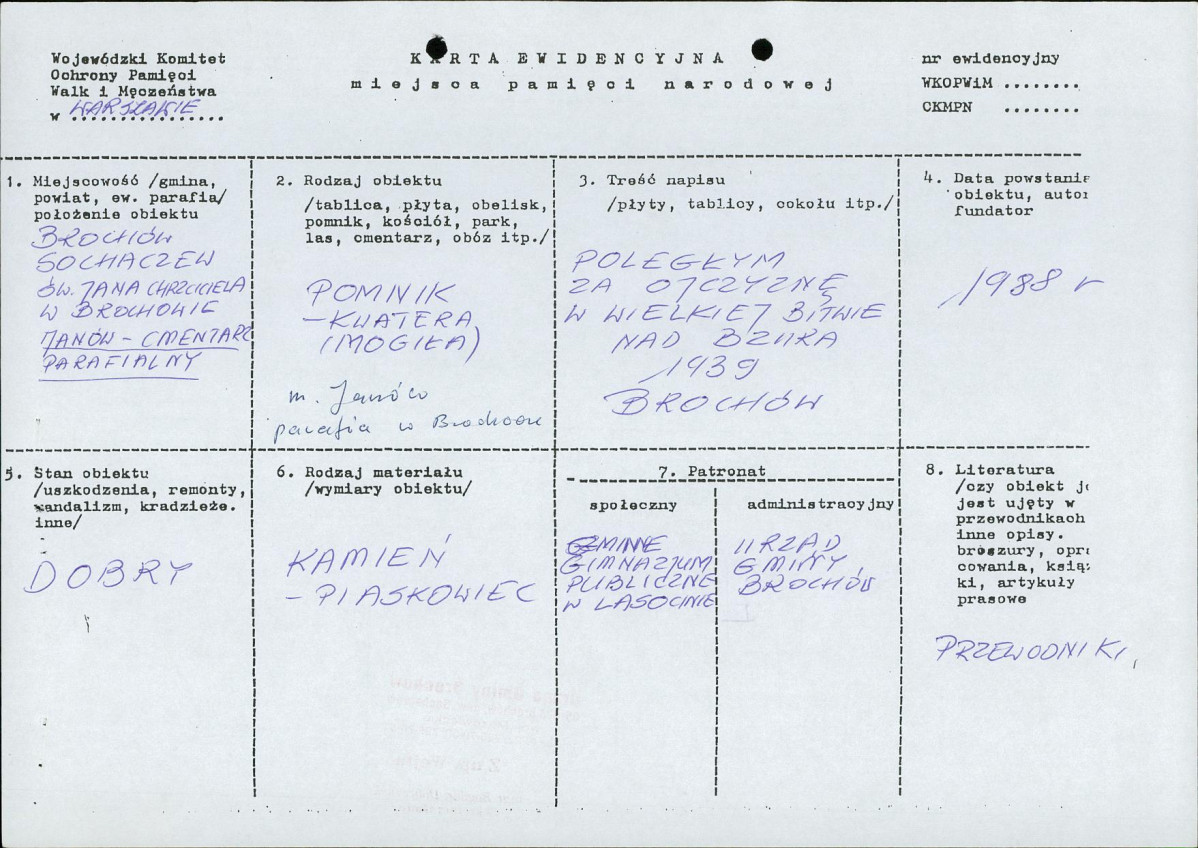 Wojewódzki Komitet
Ochrony Pamięci
Walk i Męczeństwa
w WARSZAWIE
KARTA EWIDENCYJNA
miejsca pamięci narodowej
nr ewidencyjny
WKOPWiM ........
CKMPN ........
1. Miejscowość /gmina,
powiat, ew. parafia/
położenie obiektu
BROCHÓW
SOCHACZEW
ŚW. JANA CHRZCICIELA
W BROCHOWIE
JANÓW - CMENTARZ
PARAFIALNY
2. Rodzaj obiektu
/tablica, płyta, obelisk,
pomnik, kościół, park,
las, cmentarz, obóz itp./
POMNIK
- KWATERA
(MOGIŁA)
m. Janów
parafia w Brochowie
3. Treść napisu
/płyty, tablicy, cokołu itp./
POLEGŁYM
ZA OJCZYZNĘ
W WIELKIEJ BITWIE
NAD BZURĄ
1939
BROCHÓW
4. Data powstanie
obiektu, autor
fundator
1988 r
5. Stan obiektu
/uszkodzenia, remonty,
wandalizm, kradzieże.
inne/
DOBRY
6. Rodzaj materiału
/wymiary obiektu/
KAMIEŃ
- PIASKOWIEC
7. Patronat
społeczny
GMINNE
GIMNAZJUM
PUBLICZNE
W LASOCINIE
administracyjny
URZĄD
GMINY
BROCHÓW
8. Literatura
/czy obiekt je
jest ujęty w
przewodnikach
inne opisy.
broszury, opra
cowania, książ
ki, artykuły
prasowe
PRZEWODNIKI